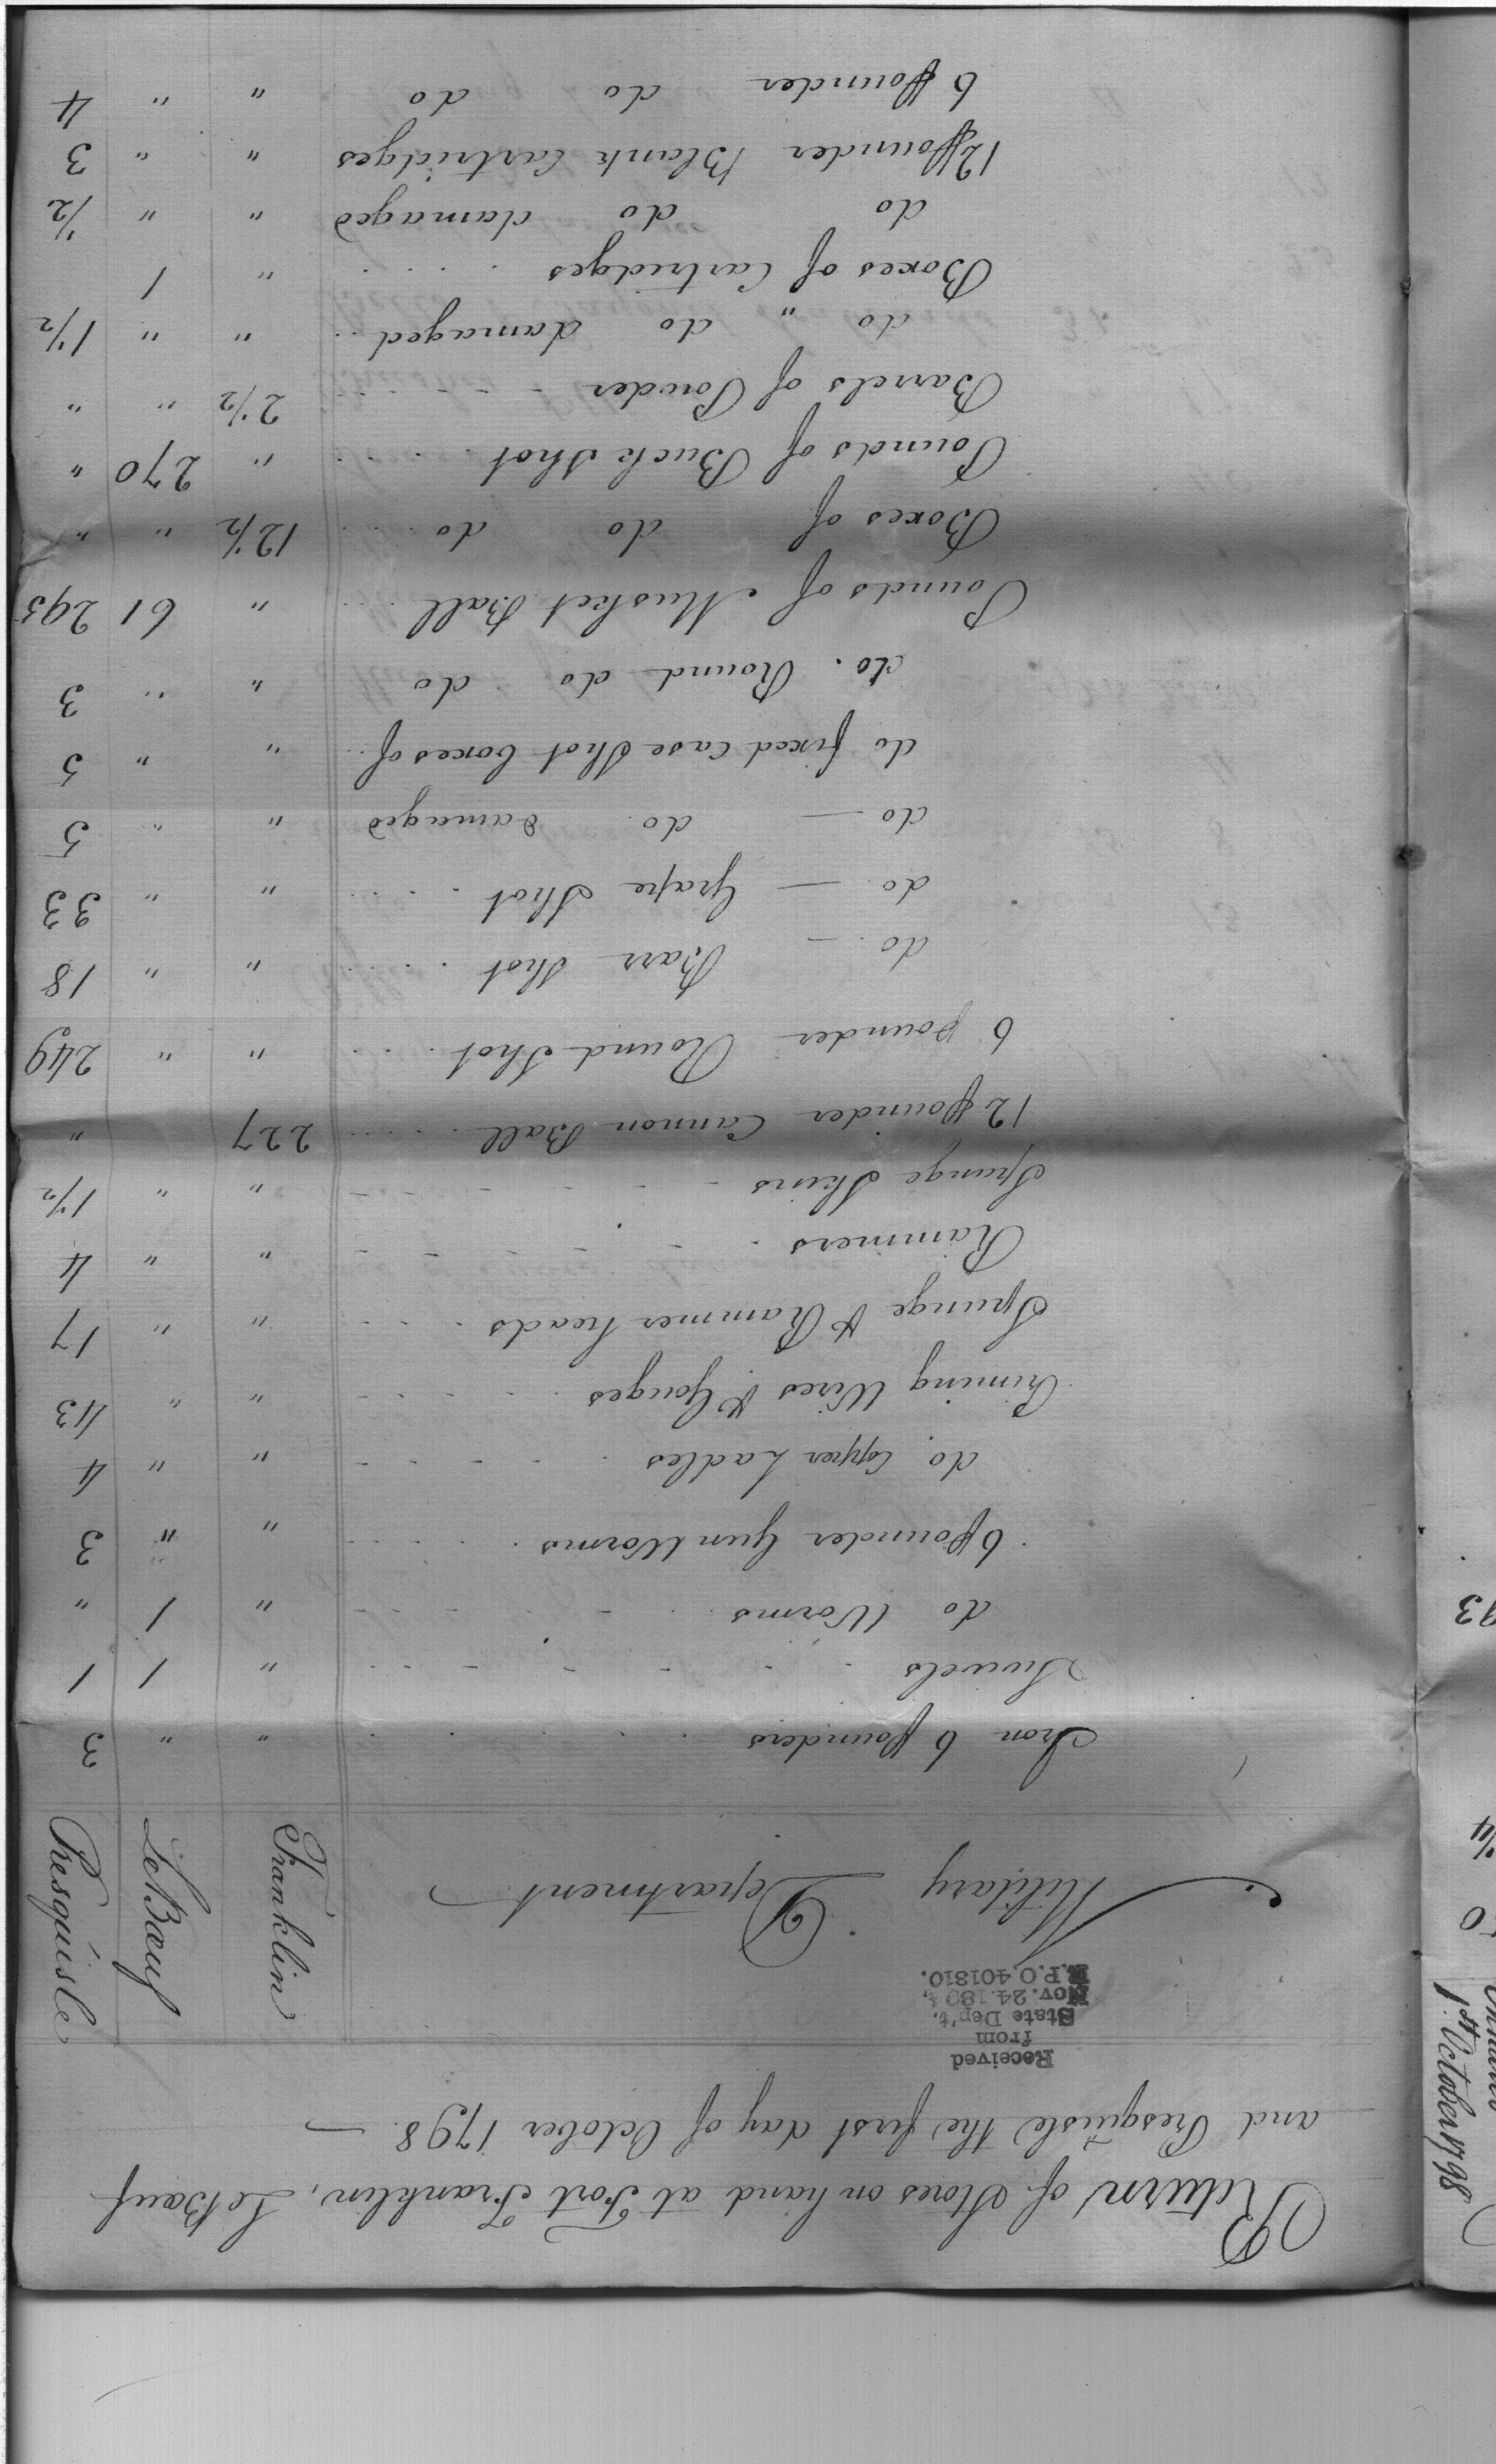 Return of Stores on hand at Fort Franklin, LeBœuf
and Presqúisle the first day of October 1798 —
Received
from
State Dep't.
Nov. 24. 1894,
R.P.O. 401810.
Military Department Franklin LeBœuf Presqúisle
Iron 6 pounders " " 3
Swivels " 1 1
do Worms " 1 "
6 pounder Gun Worms " " 3
do. Copper Ladles " " 4
Priming Wires & Gouges " " 43
Spunge & Rammer heads " " 17
Rammers " " 4
Spunge Skins " " 1½
12 pounder Cannon Ball 227 "
6 pounder Round Shot " " 249
do — Barr Shot " " 18
do — Grape Shot " " 33
do — do damaged " " 5
do fixed Case Shot boxes of " " 5
do. Round do do " " 3
Pounds of Musket Ball " 61 295
Boxes of do do 12½ " "
Pounds of Buck Shot " 270 "
Barrels of Powder 2½ " "
do " do damaged " " 1½
Boxes of Cartridges " 1
do do damaged " " ½
12 pounder Blank Cartridges " " 3
6 pounder do do " " 4
1st. October 1798